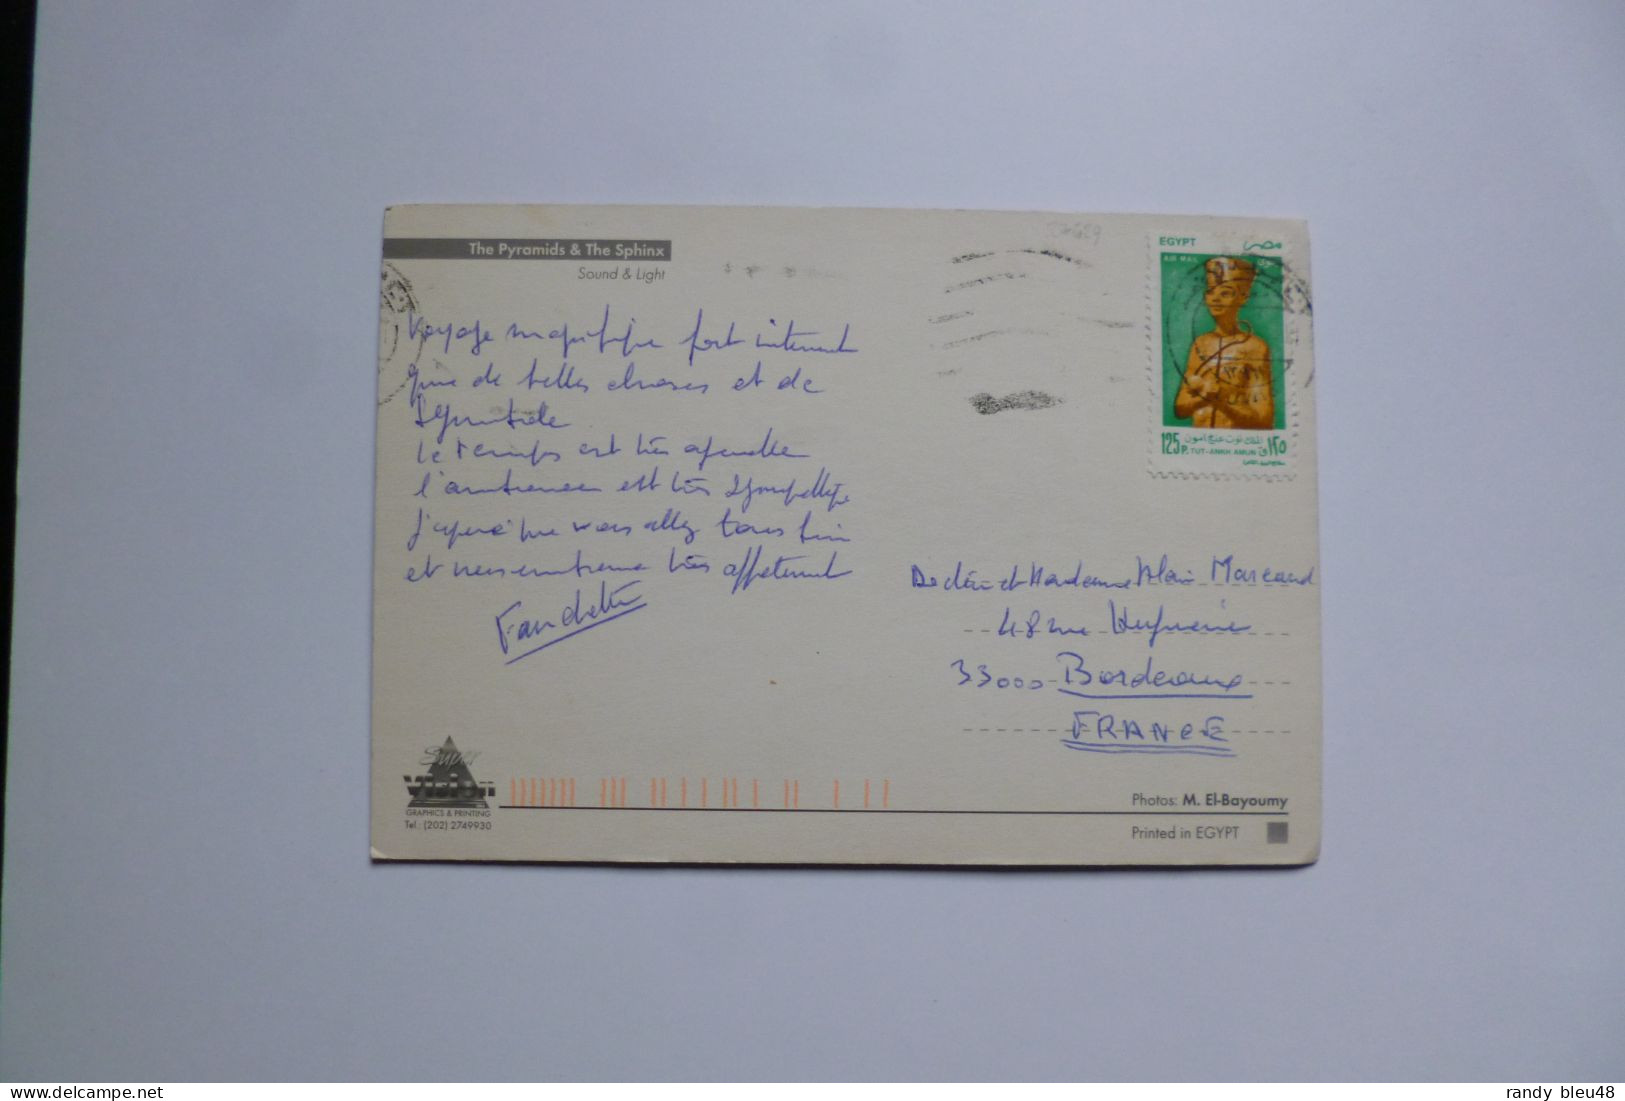 The Pyramids & The Sphinx
Sound & Light
Voyage magnifique fort intenant
que de belles choses et de
Le temps est très agréable
l'ambiance est très sympathique
j'espère que vous allez tous bien
et vous embrasse très affectument
EGYPT مصر
AIR MAIL جوى
125 P. ١٢٥
الملك توت عنخ آمون
TUT-ANKH AMUN
Docteur et Madame Alain Marcand
48 rue
33000 Bordeaux
FRANCE
Super
Vision
GRAPHICS & PRINTING
Tel.: (202) 2749930
Photos: M. El-Bayoumy
Printed in EGYPT
delcampe.net
randy bleu48